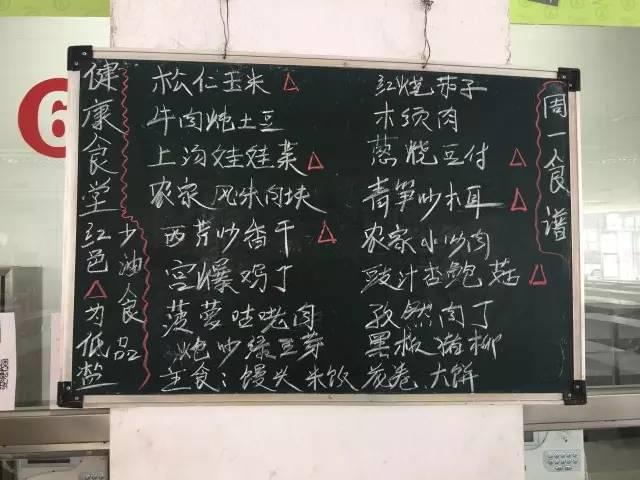 6
周一食谱
健康食堂
红色△为低盐
少油食品
松仁玉米 △
牛肉炖土豆
上汤娃娃菜 △
农家风味肉块
西芹炒香干 △
宫爆鸡丁
菠萝咕咾肉
炝炒绿豆芽
红烧茄子
木须肉
葱烧豆付 △
青笋炒木耳 △
农家小炒肉
豉汁杏鲍菇 △
孜然肉丁
黑椒猪柳
主食：馒头 米饭 花卷 大饼